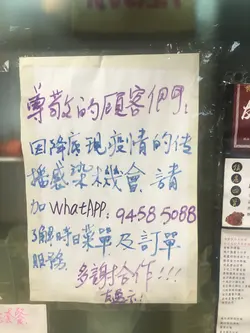 尊敬的顧客們：
因降底現疫情的传
播感染機會，請
加 WhatAPP：9458 5088
了解時日菜單及訂單
服務，
多謝合作!!!